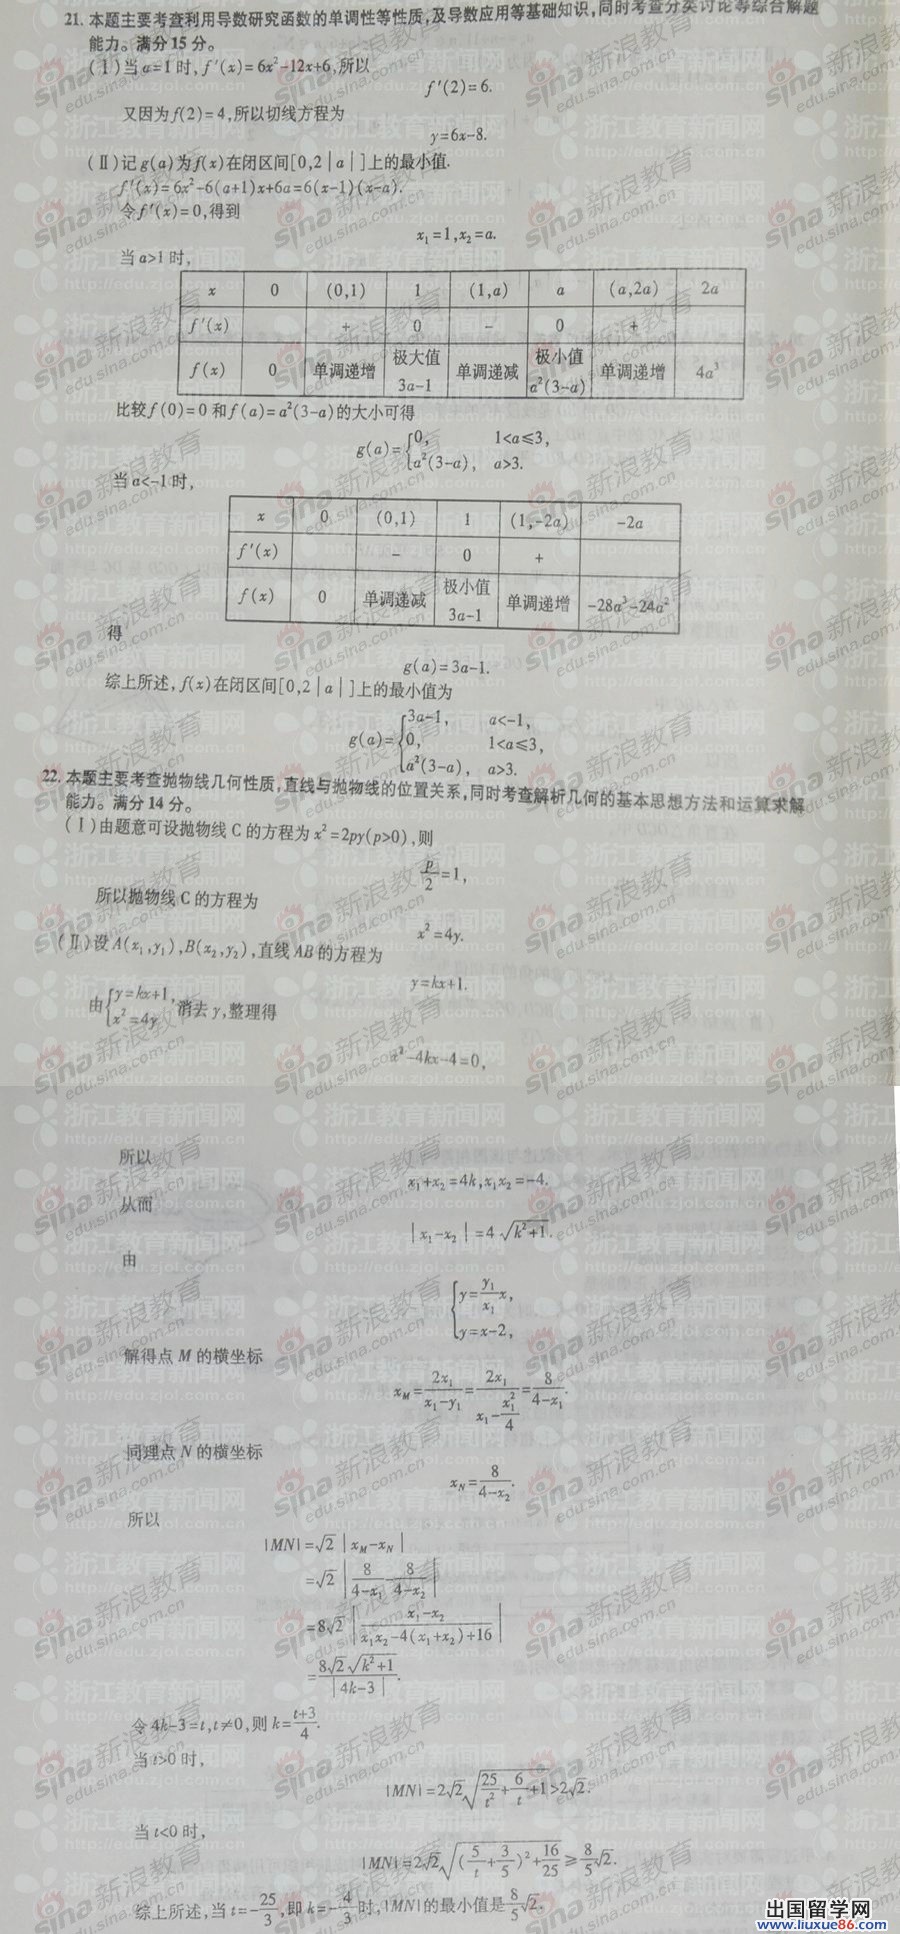 21. 本题主要考查利用导数研究函数的单调性等性质,及导数应用等基础知识,同时考查分类讨论等综合解题
能力。满分15分。
(Ⅰ)当a=1时,f′(x)=6x²-12x+6,所以
f′(2)=6.
又因为f(2)=4,所以切线方程为
y=6x-8.
(Ⅱ)记g(a)为f(x)在闭区间[0,2|a|]上的最小值.
f′(x)=6x²-6(a+1)x+6a=6(x-1)(x-a).
令f′(x)=0,得到
x₁=1,x₂=a.
当a>1时,
x 0 (0,1) 1 (1,a) a (a,2a) 2a
f′(x) + 0 - 0 +
f(x) 0 单调递增 极大值 3a-1 单调递减 极小值 a²(3-a) 单调递增 4a³
比较f(0)=0和f(a)=a²(3-a)的大小可得
g(a)={0, 1<a≤3,
a²(3-a), a>3.
当a<-1时,
x 0 (0,1) 1 (1,-2a) -2a
f′(x) - 0 +
f(x) 0 单调递减 极小值 3a-1 单调递增 -28a³-24a²
得
g(a)=3a-1.
综上所述,f(x)在闭区间[0,2|a|]上的最小值为
g(a)={3a-1, a<-1,
0, 1<a≤3,
a²(3-a), a>3.
22. 本题主要考查抛物线几何性质,直线与抛物线的位置关系,同时考查解析几何的基本思想方法和运算求解
能力。满分14分。
(Ⅰ)由题意可设抛物线C的方程为x²=2py(p>0),则
p/2=1,
所以抛物线C的方程为
x²=4y.
(Ⅱ)设A(x₁,y₁),B(x₂,y₂),直线AB的方程为
y=kx+1.
由{y=kx+1, x²=4y 消去y,整理得
x²-4kx-4=0,
所以
x₁+x₂=4k,x₁x₂=-4.
从而
|x₁-x₂|=4√(k²+1).
由
{y=(y₁/x₁)x,
y=x-2,
解得点M的横坐标
x_M=2x₁/(x₁-y₁)=2x₁/(x₁-x₁²/4)=8/(4-x₁).
同理点N的横坐标
x_N=8/(4-x₂).
所以
|MN|=√2|x_M-x_N|
=√2|8/(4-x₁)-8/(4-x₂)|
=8√2|(x₁-x₂)/(x₁x₂-4(x₁+x₂)+16)|
=8√2√(k²+1)/|4k-3|.
令4k-3=t,t≠0,则k=(t+3)/4.
当t>0时,
|MN|=2√2√(25/t²+6/t+1)>2√2.
当t<0时,
|MN|=2√2√((5/t+3/5)²+16/25)≥(8/5)√2.
综上所述,当t=-25/3,即k=-4/3时,|MN|的最小值是(8/5)√2.
出国留学网
www.liuxue86.com